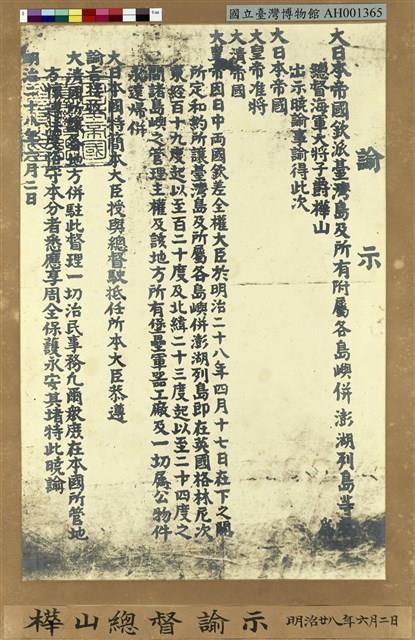 國立臺灣博物館 AH001365
諭示
大日本帝國欽派臺灣島及所有附屬各島嶼併澎湖列島等
總督海軍大將子爵樺山
出示曉諭事諭得此次
大日本帝國
大皇帝准將
大清帝國
大皇帝因日中両國欽差全權大臣於明治二十八年四月十七日在下之關
所定和約所讓臺灣島及所屬各島嶼併澎湖列島即在英國格林尼次
東經百十九度起以至百二十度及北緯二十三度起以至二十四度之
間諸島嶼之管理主權及該地方所有堡壘軍器工廠及一切属公物件
永遠歸併
大日本國特簡本大臣授與總督駛抵任所本大臣恭遵
諭旨接收
大清國所讓各地方併駐此督理一切治民事務凡爾衆庶在本國所管地
方懍遵法度恪守本分者悉應享周全保護永安其堵特此曉諭
明治二十八年六月二日
樺山總督諭示 明治廿八年六月二日